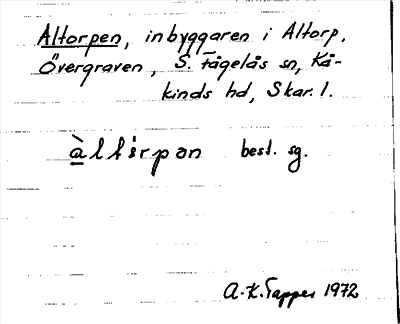 Altorpen, inbyggaren i Altorp,
Övergraven, S. Fågelås sn, Kå-
kinds hd, Skar. l.
best. sg.
A.-K. Tapper 1972